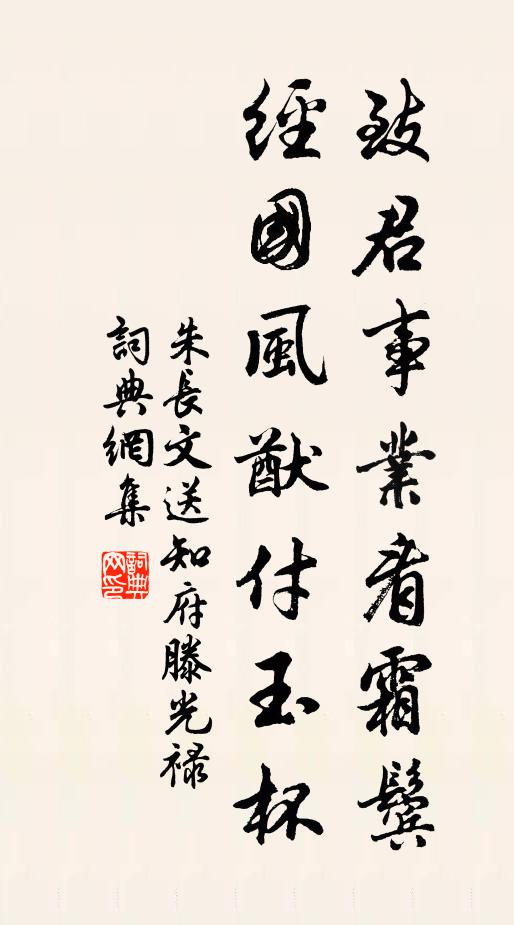 致君事業看霜鬢
經國風猷付玉杯
朱長文送知府滕光祿
詞典網集
詞典網印